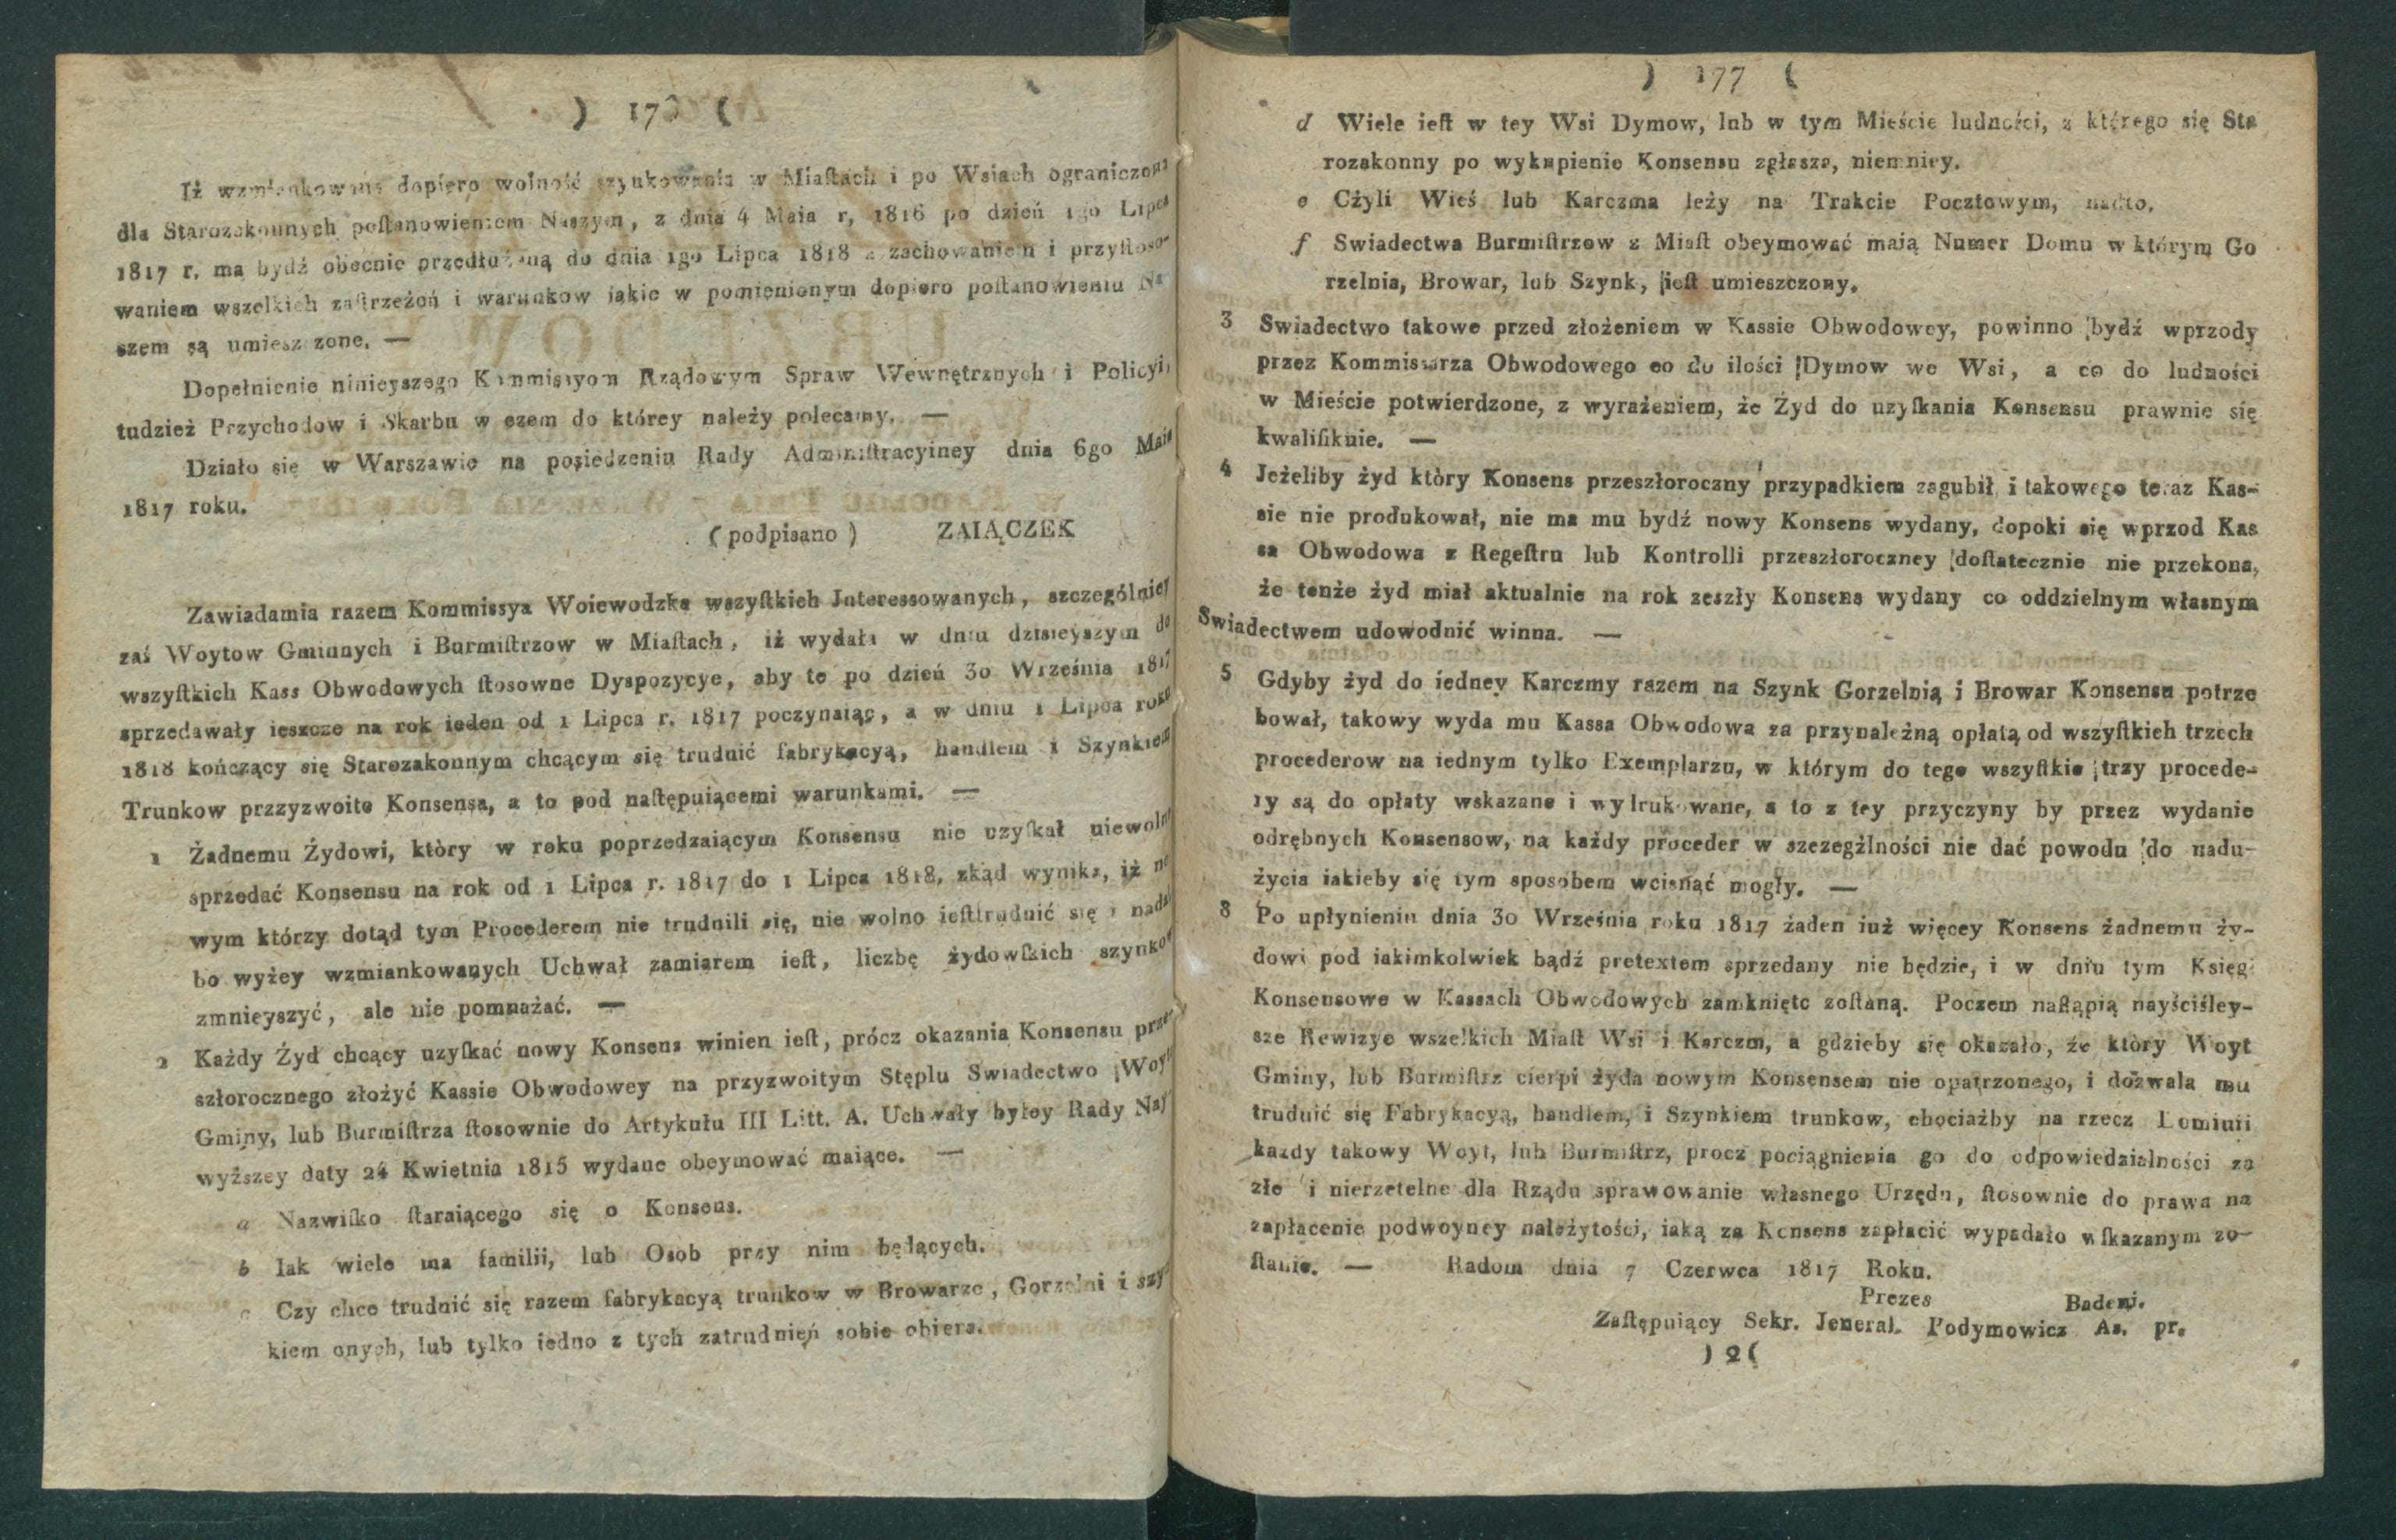 ) 176 (
Iż wzmiankowana dopiero wolność szynkowania w Miastach i po Wsiach ograniczona
dla Starozakonnych postanowieniem Naszym, z dnia 4 Maia r, 1816 po dzień 1go Lipca
1817 r. ma bydź obecnie przedłużoną do dnia 1go Lipca 1818 z zachowaniem i przystoso-
waniem wszelkich zastrzeżoń i warunkow iakie w pomienionym dopiero postanowieniu Na
szem są umieszczone. —
Dopełnienie ninieyszego Kommissyom Rządowym Spraw Wewnętrznych i Policyi,
tudzież Przychodow i Skarbu w czem do którey należy polecamy. —
Działo się w Warszawie na posiedzeniu Rady Administracyiney dnia 6go Maia
1817 roku.
( podpisano ) ZAIĄCZEK
Zawiadamia razem Kommissya Woiewodzka wszystkich Interessowanych, szczególniey
zaś Woytow Gminnych i Burmistrzow w Miastach, iż wydała w dniu dzisieyszym do
wszystkich Kass Obwodowych stosowne Dyspozycye, aby te po dzień 30 Września 1817
sprzedawały ieszcze na rok ieden od 1 Lipca r. 1817 poczynaiąc, a w dniu 1 Lipca roku
1818 kończący się Starozakonnym chcącym się trudnić fabrykacyą, handlem i Szynkiem
Trunkow przzyzwoite Konsensa, a to pod następuiącemi warunkami. —
1 Żadnemu Żydowi, który w roku poprzedzaiącym Konsensu nie uzyskał niewolno
sprzedać Konsensu na rok od 1 Lipca r. 1817 do 1 Lipca 1818, zkąd wynika, iż no
wym którzy dotąd tym Procederem nie trudnili się, nie wolno iesttrudnić się i nadal
bo wyżey wzmiankowanych Uchwał zamiarem iest, liczbę żydowskich szynkow
zmnieyszyć, ale nie pomnażać. —
2 Każdy Żyd chcący uzyskać nowy Konsens winien iest, prócz okazania Konsensu prze-
szłorocznego złożyć Kassie Obwodowey na przyzwoitym Stęplu Swiadectwo Woyta
Gminy, lub Burmistrza stosownie do Artykułu III Litt. A. Uchwały byłey Rady Nay
wyższey daty 24 Kwietnia 1815 wydane obeymować maiące. —
a Nazwisko staraiącego się o Konsens.
b Iak wiele ma familii, lub Osob przy nim będących.
c Czy chce trudnić się razem fabrykacyą trunkow w Browarze, Gorzelni i szyn
kiem onych, lub tylko iedno z tych zatrudnień sobie obiera.
) 177 (
d Wiele iest w tey Wsi Dymow, lnb w tym Mieście ludności, z którego się Sta
rozakonny po wykupienie Konsensu zgłasza, niemniey.
e Cżyli Wieś lub Karczma leży na Trakcie Pocztowym, nadto.
f Swiadectwa Burmistrzow z Miast obeymować maią Numer Domu w którym Go
rzelnia, Browar, lub Szynk, iest umieszczony.
3 Swiadectwo takowe przed złożeniem w Kassie Obwodowey, powinno bydź wprzody
przez Kommissarza Obwodowego co do ilości Dymow we Wsi, a co do ludności
w Mieście potwierdzone, z wyrażeniem, że Żyd do uzyskania Konsensu prawnie się
kwalifikuie. —
4 Jeżeliby żyd który Konsens przeszłoroczny przypadkiem zagubił i takowego teraz Kas-
sie nie produkował, nie ma mu bydź nowy Konsens wydany, dopoki się wprzod Kas
sa Obwodowa z Regestru lub Kontrolli przeszłoroczney dostatecznie nie przekona,
że tenże żyd miał aktualnie na rok zeszły Konsens wydany co oddzielnym własnym
Swiadectwem udowodnić winna. —
5 Gdyby żyd do iedney Karczmy razem na Szynk Gorzelnią i Browar Konsensu potrze
bował, takowy wyda mu Kassa Obwodowa za przynależną opłatą od wszystkich trzech
procederow na iednym tylko Exemplarzu, w którym do tego wszystkie trzy procede-
ry są do opłaty wskazane i wydrukowane, a to z tey przyczyny by przez wydanie
odrębnych Konsensow, na każdy proceder w szczególności nie dać powodu do nadu-
życia iakieby się tym sposobem wcisnąć mogły. —
8 Po upłynieniu dnia 30 Września roku 1817 żaden iuż więcey Konsens żadnemu ży-
dowi pod iakimkolwiek bądź pretextem sprzedany nie będzie, i w dniu tym Księgi
Konsensowe w Kassach Obwodowych zamknięte zostaną. Poczem nastąpią nayściśley-
sze Rewizye wszelkich Miast Wsi i Karczm, a gdzieby się okazało, że który Woyt
Gminy, lub Burmistrz cierpi żyda nowym Konsensem nie opatrzonego, i dozwala mu
trudnić się Fabrykacyą, handlem, i Szynkiem trunkow, chociażby na rzecz Dominii
kazdy takowy Woyt, lub Burmistrz, procz pociągnienia go do odpowiedzialności za
złe i nierzetelne dla Rządu sprawowanie własnego Urzędu, stosownie do prawa na
zapłacenie podwoyney należytości, iaką za Konsens zapłacić wypadało wskazanym zo-
stanie. — Radom dnia 7 Czerwca 1817 Roku.
Prezes Badeni.
Zastępuiący Sekr. Jeneral. Podymowicz As. pr.
) 2 (